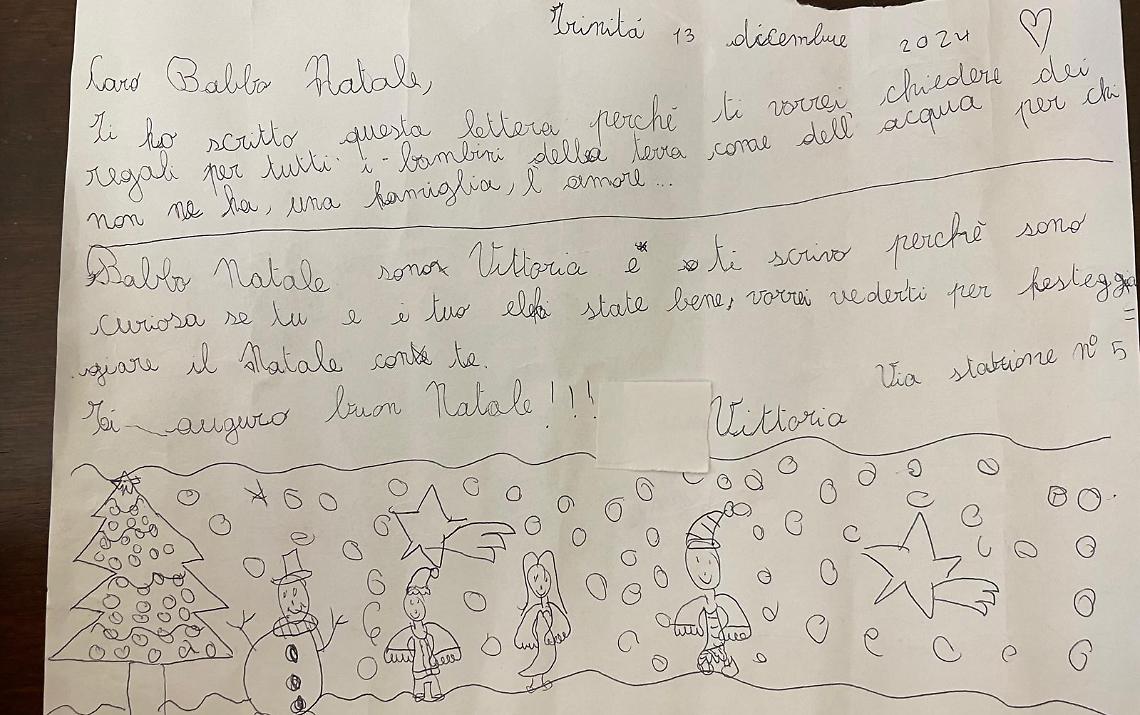 Trinitá 13 dicembre 2024
Caro Babbo Natale,
Ti ho scritto questa lettera perché ti vorrei chiedere dei
regali per tutti i bambini della terra come dell'acqua per chi
non ne ha, una famiglia, l'amore...
Babbo Natale sono Vittoria e ti scrivo perchè sono
curiosa se tu e i tuo elfi state bene, vorrei vederti per festeg
giare il Natale con te.
Via stazione n° 5
Ti auguro buon Natale!!!
Vittoria